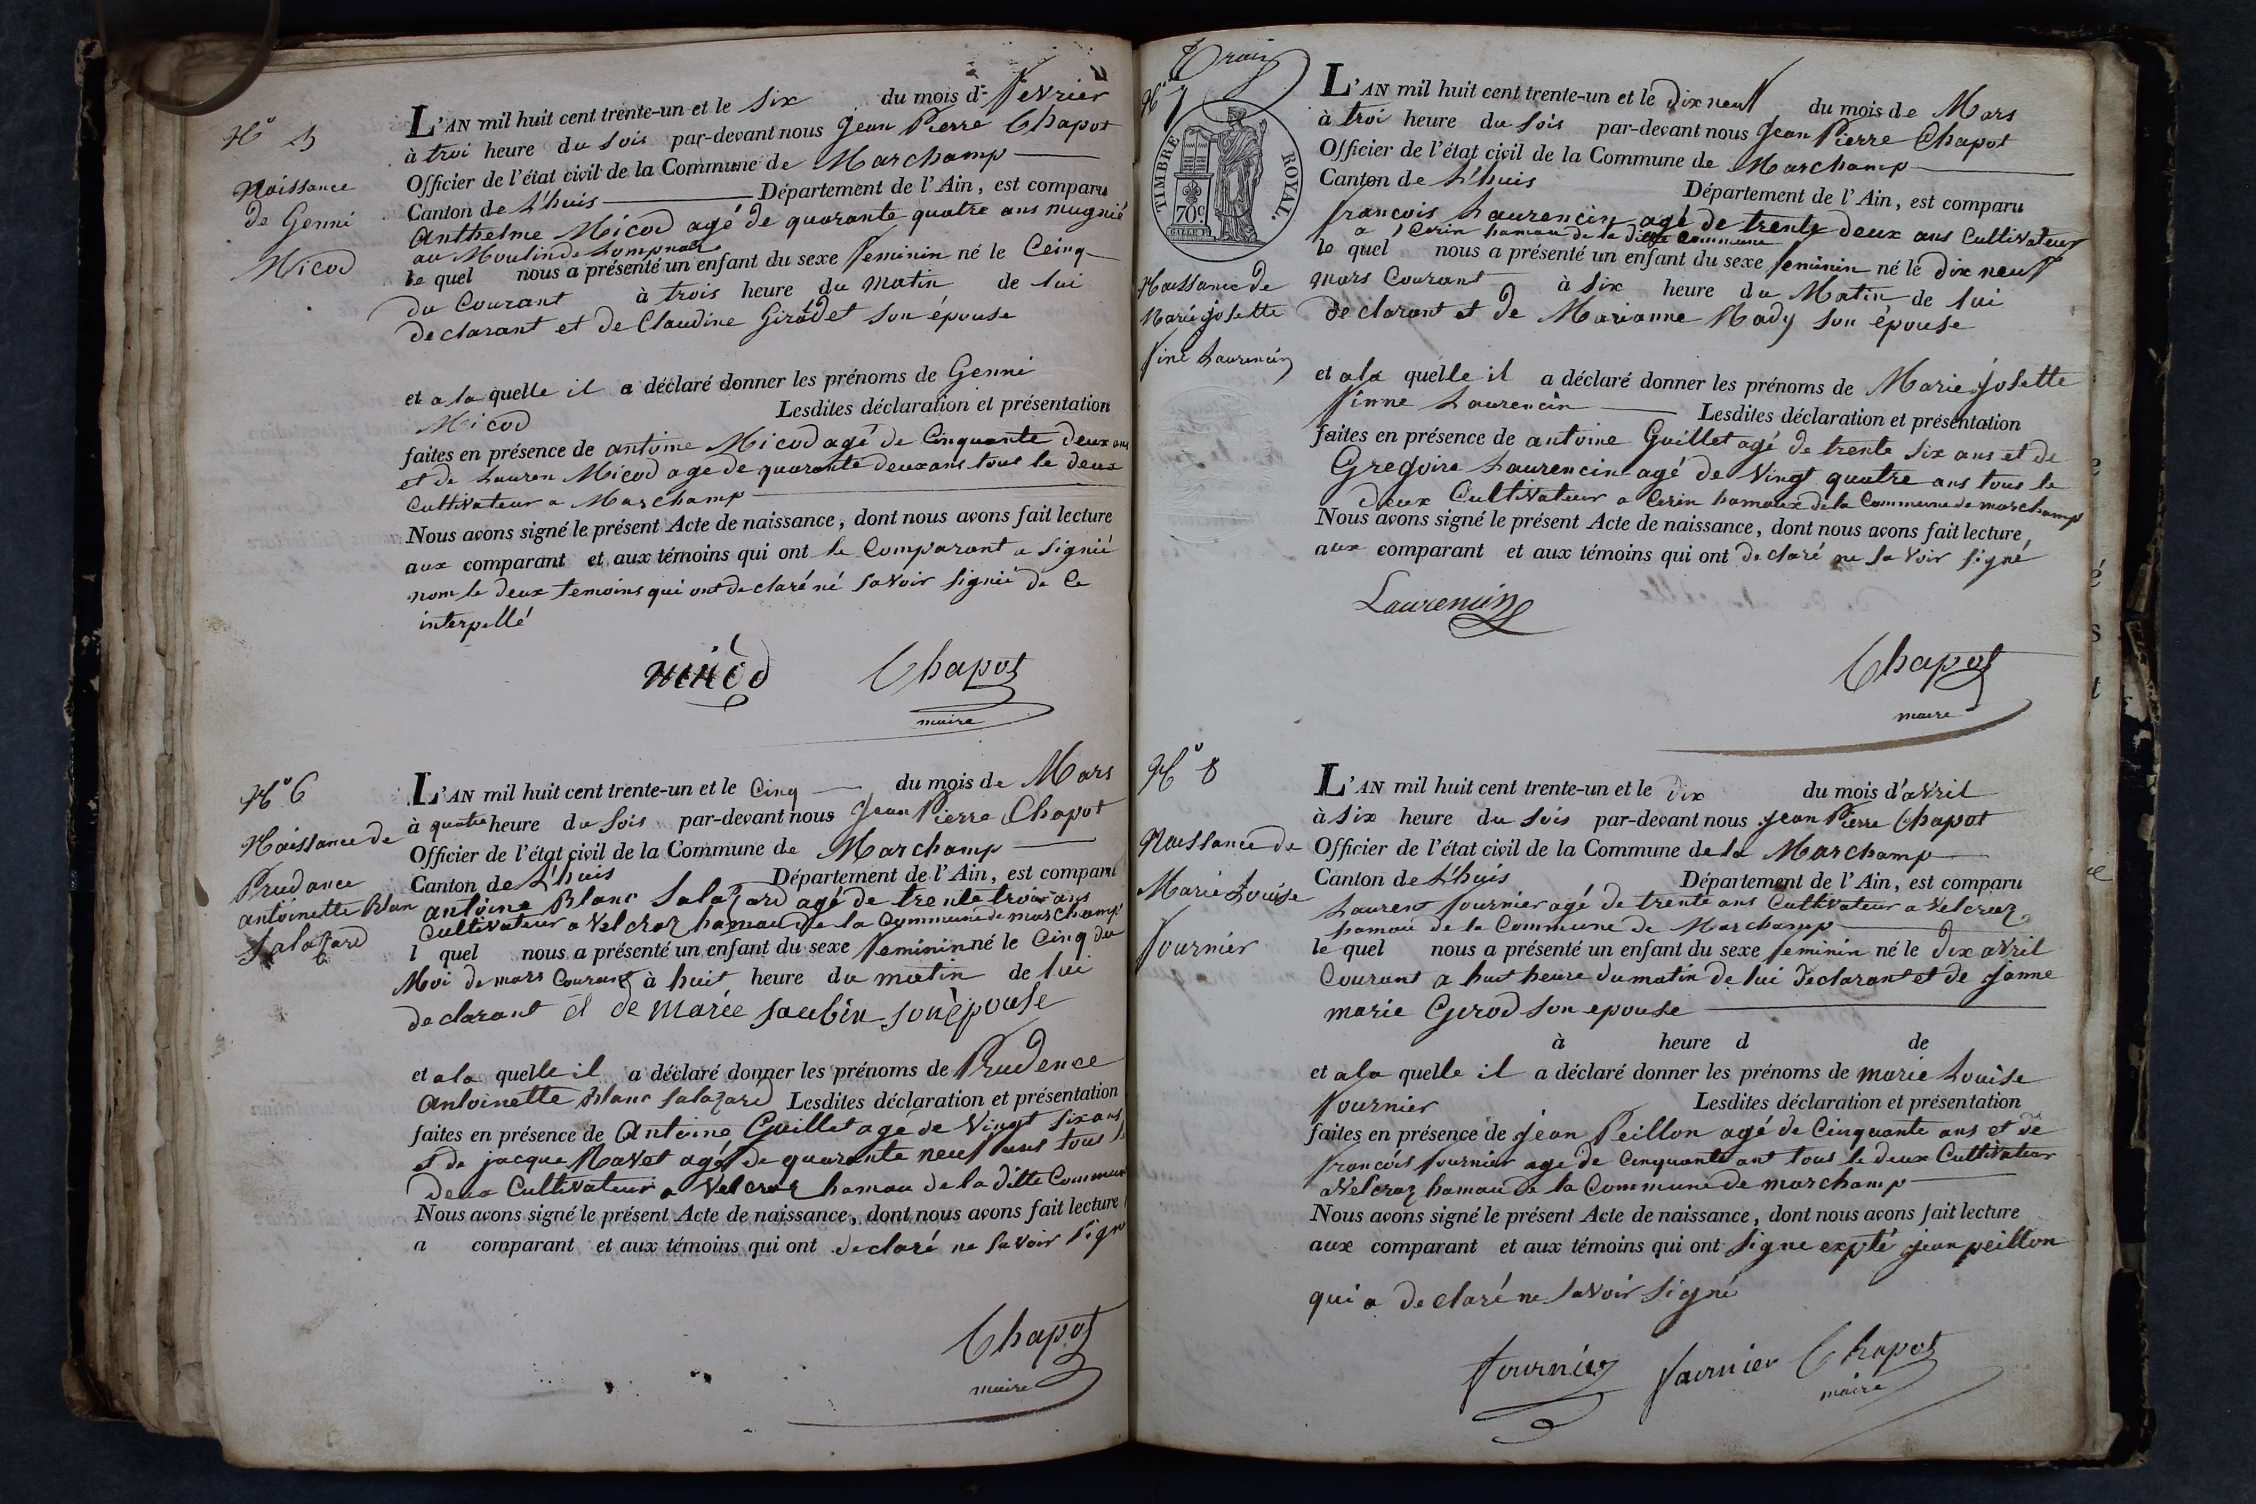 N° 5
Naissance
de Genni
Nicod
L'AN mil huit cent trente-un et le six du mois de fevrier
à troi heure du soir par-devant nous Jean Pierre Chapot
Officier de l'état civil de la Commune de Marchamp
Canton de L'huis Département de l'Ain, est comparu
Anthelme Nicod agé de quarante quatre ans mugnié
au Moulin de
le quel nous a présenté un enfant du sexe feminin né le Ceinq
du Courant à trois heure du matin de lui
declarant et de Claudine Girodet son épouse
et a la quelle il a déclaré donner les prénoms de Genni
Nicod Lesdites déclaration et présentation
faites en présence de antoine Nicod agé de Cinquante deux ans
et de Lauren Nicod age de quarante deux ans tous le deux
Cultivateur a Marchamp
Nous avons signé le présent Acte de naissance, dont nous avons fait lecture
aux comparant et aux témoins qui ont le Comparant a signié
nom le deux temoins qui ont declaré né savoir signié de Ce
interpellé
nicod Chapot
maire
N° 6
Naissance de
Prudance
antoinette Blan
Salazard
L'AN mil huit cent trente-un et le Cinq du mois de Mars
à quatre heure du soir par-devant nous Jean Pierre Chapot
Officier de l'état civil de la Commune de Marchamp
Canton de L'huis Département de l'Ain, est comparu
antoine Blanc Salazard agé de trente trois ans
Cultivateur a Velcroz hamau de la Commune de marchamp
l quel nous a présenté un enfant du sexe feminin né le Cinq du
Moi de mars Courant à huit heure du matin de lui
declarant et de marie saubin son épouse
et a la quelle il a déclaré donner les prénoms de Prudence
Antoinette Blanc Salazard Lesdites déclaration et présentation
faites en présence de Antoine Guillet agé de Vingt six ans
et de jacque Ravet agé de quarante neuf ans tous le
deux Cultivateur a Velcroz hamau de la ditte Commun
Nous avons signé le présent Acte de naissance, dont nous avons fait lecture
a comparant et aux témoins qui ont declaré ne savoir sign
Chapot
maire
Trois
N° 7
TIMBRE ROYAL.
70 c
Naissance de
Marie josette
fine Laurencin
L'AN mil huit cent trente-un et le Dix neuf du mois de Mars
à troi heure du soir par-devant nous Jean Pierre Chapot
Officier de l'état civil de la Commune de Marchamp
Canton de L'huis Département de l'Ain, est comparu
francois Laurencin agé de trente deux ans Cultivateur
a Cerin hamau de la ditte Commune
le quel nous a présenté un enfant du sexe feminin né le dix neuf
mars Courant à six heure du Matin de lui
declarant et de Marianne Nady son épouse
et a la quelle il a déclaré donner les prénoms de Marie josette
finne Laurencin Lesdites déclaration et présentation
faites en présence de antoine Guillet agé de trente six ans et de
Gregoire Laurencin agé de Vingt quatre ans tous le
deux Cultivateur a Cerin hamaux de la Commune de marchamp
Nous avons signé le présent Acte de naissance, dont nous avons fait lecture
aux comparant et aux témoins qui ont declaré ne savoir signé
Laurencin
Chapot
maire
N° 8
Naissance de
Marie Louise
fournier
L'AN mil huit cent trente-un et le dix du mois d'avril
à six heure du soir par-devant nous jean Pierre Chapot
Officier de l'état civil de la Commune de la Marchamp
Canton de L'huis Département de l'Ain, est comparu
Laurent fournier agé de trente ans Cultivateur a Velcroz
hamau de la Commune de Marchamp
le quel nous a présenté un enfant du sexe feminin né le dix avril
Courant a huit heure du matin de lui declarant et de janne
marie Gerod son epouse
à heure d de
et a la quelle il a déclaré donner les prénoms de marie Louise
fournier Lesdites déclaration et présentation
faites en présence de jean Peillon agé de Cinquante ans et de
francois fournier age de Cinquante ans tous le deux Cultivateur
a Velcroz hamau de la Commune de marchamp
Nous avons signé le présent Acte de naissance, dont nous avons fait lecture
aux comparant et aux témoins qui ont signe expté jean peillon
qui a declaré ne savoir signé
fournier fournier Chapot
maire